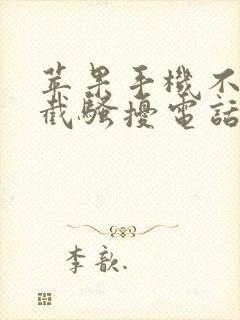 苹果手機不
截騷擾電話
李歆.